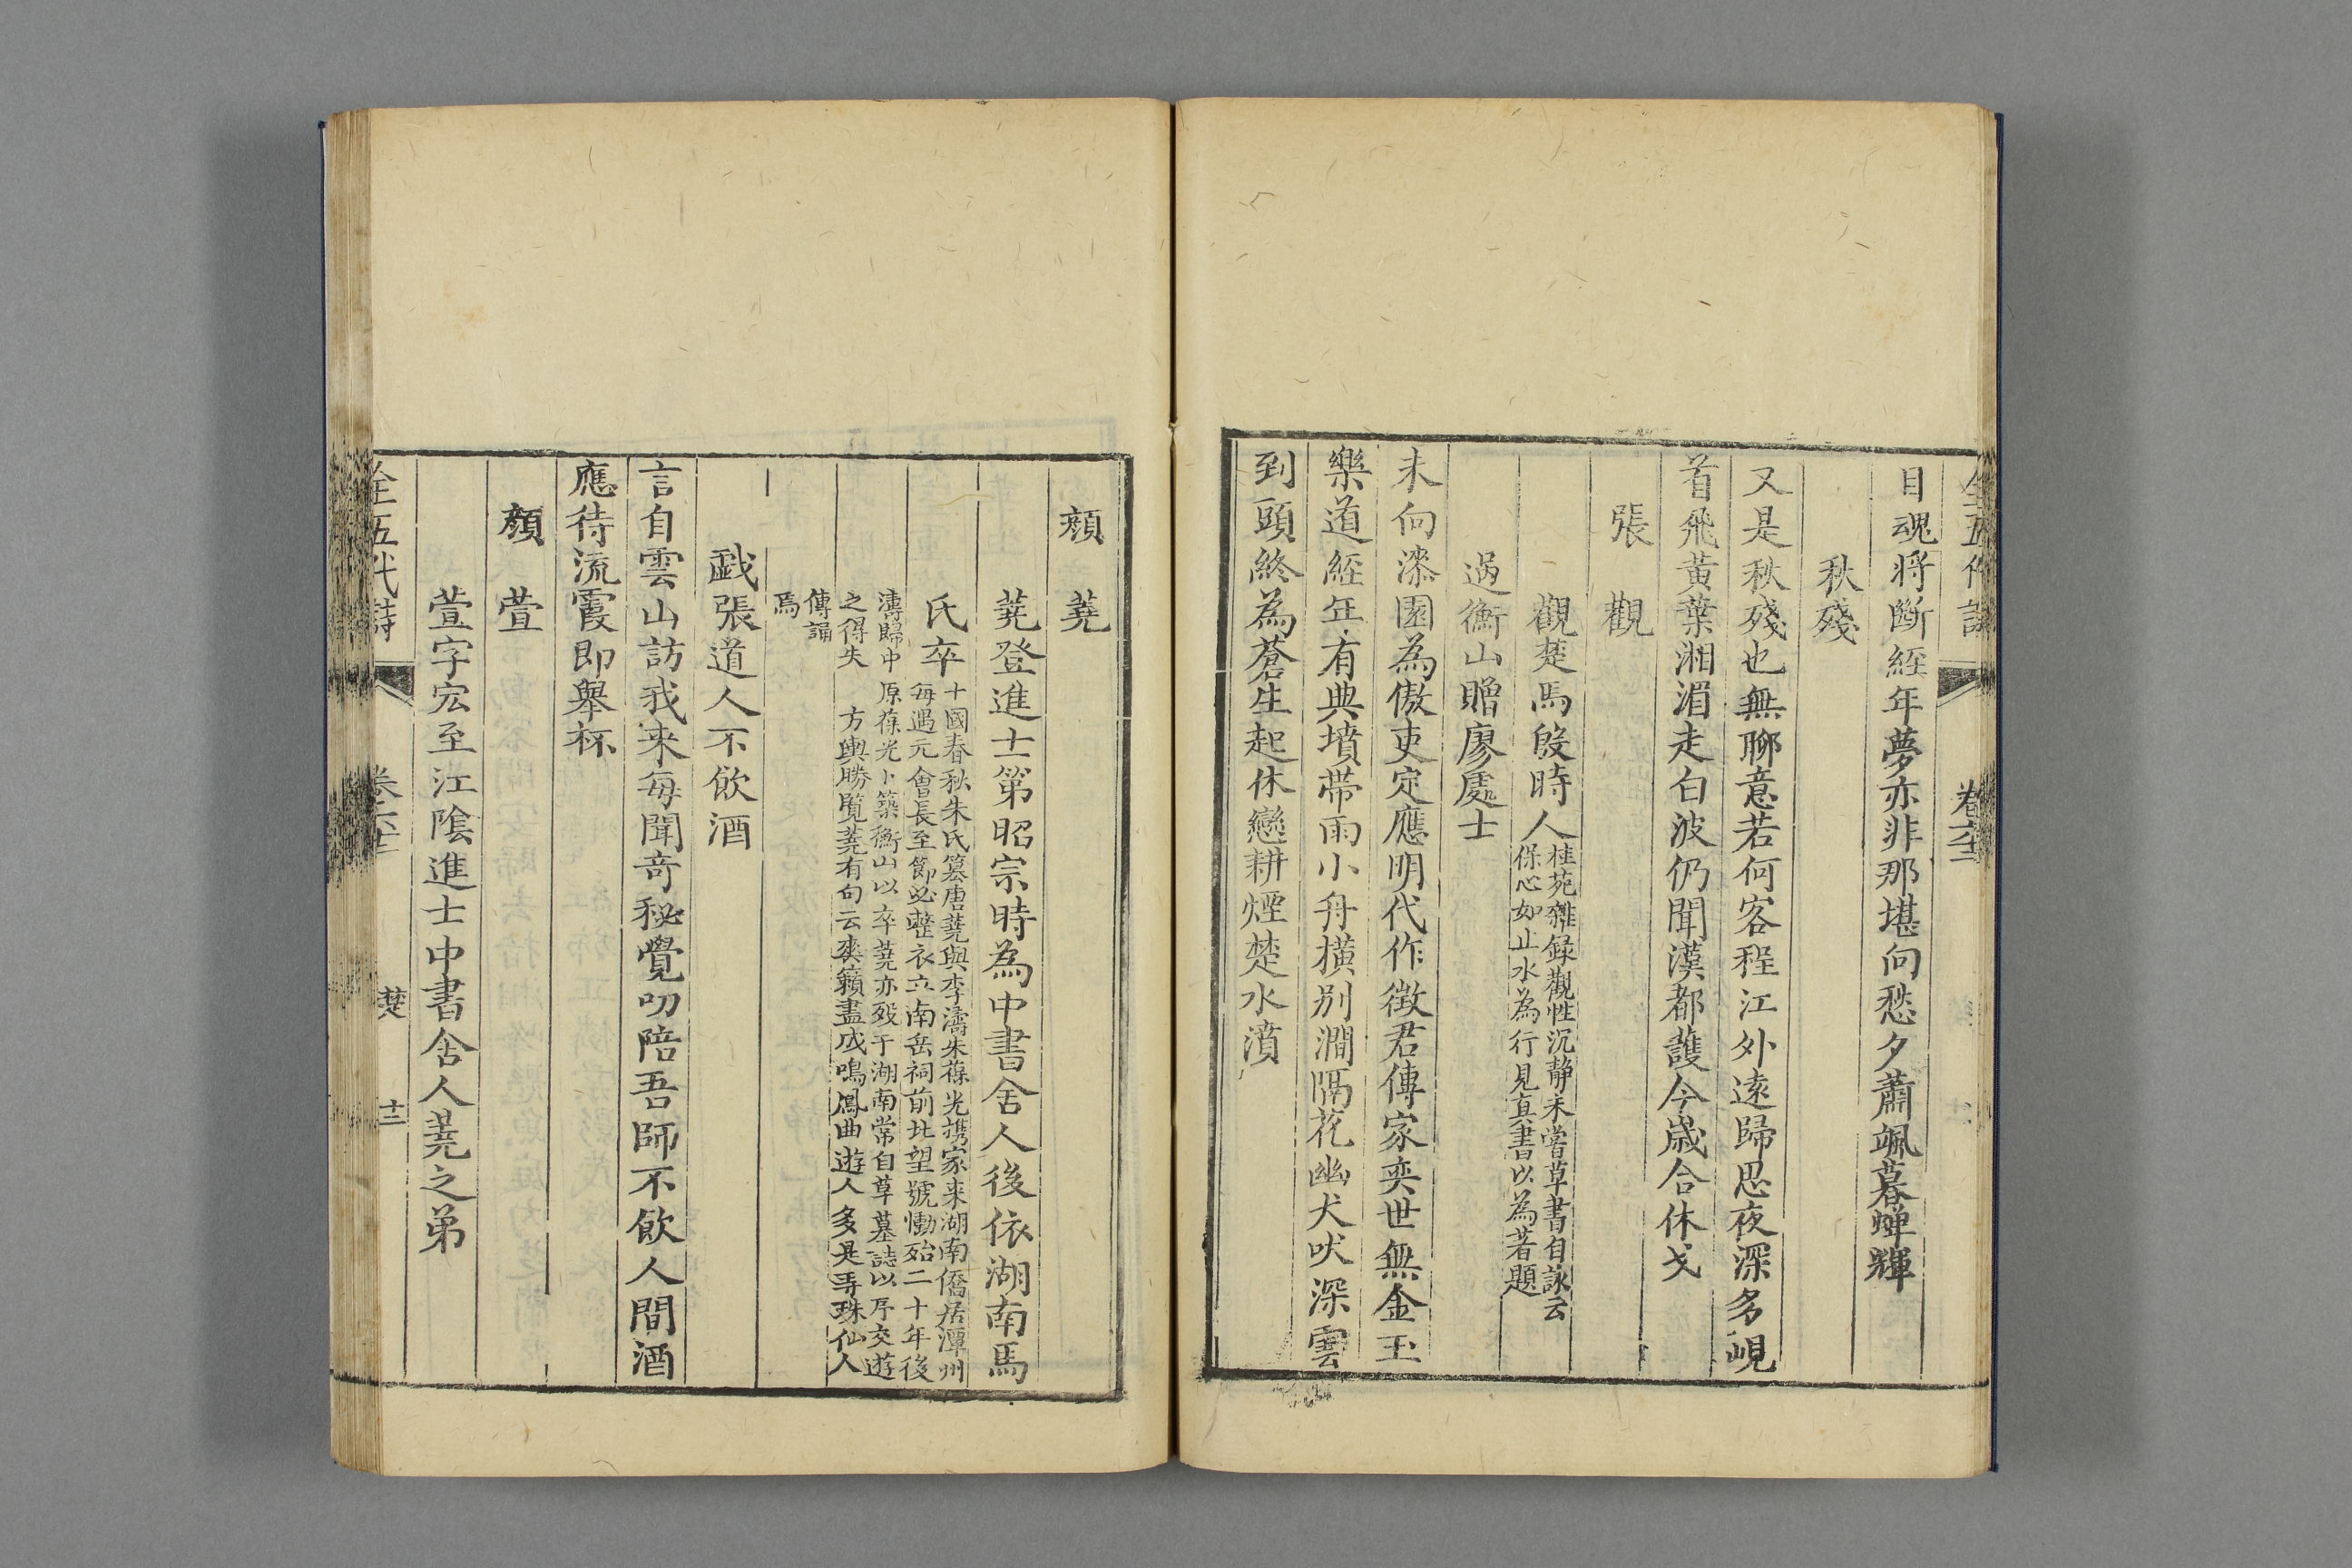 全五代詩 卷六十二
目魂將斷經年夢亦非那堪向愁夕蕭颯暮蟬輝
秋殘
又是秋殘也無聊意若何客程江外遠歸思夜深多峴
首飛黃葉湘湄走白波仍聞漢都護今歲合休戈
張觀
觀楚馬殷時人
桂苑雜録觀性沉静未嘗草書自詠云
保心如止水為行見真書以為著題
過衡山贈廖處士
未向漆園為傲吏定應明代作徴君傳家奕世無金玉
樂道經年有典墳帶雨小舟橫别澗隔花幽犬吠深雲
到頭終為蒼生起休戀耕煙楚水濆
顔蕘
蕘登進士第昭宗時為中書舍人後依湖南馬
氏卒
十國春秋朱氏篡唐蕘與李濤朱葆光携家来湖南僑居潭州
每遇元會長至節必整衣立南岳祠前北望號慟殆二十年後
濤歸中原葆光卜築衡山以卒蕘亦歿于湖南常自草墓誌以序交遊
之得失 方輿勝覧蕘有句云爽籟盡成鳴鳳曲遊人多是弄珠仙人
傳誦
焉
戯張道人不飲酒
言自雲山訪我来每聞奇秘覺叨陪吾師不飲人間酒
應待流霞即舉杯
顔萱
萱字宏至江陰進士中書舍人蕘之弟
全五代詩 卷六十二 楚 十二